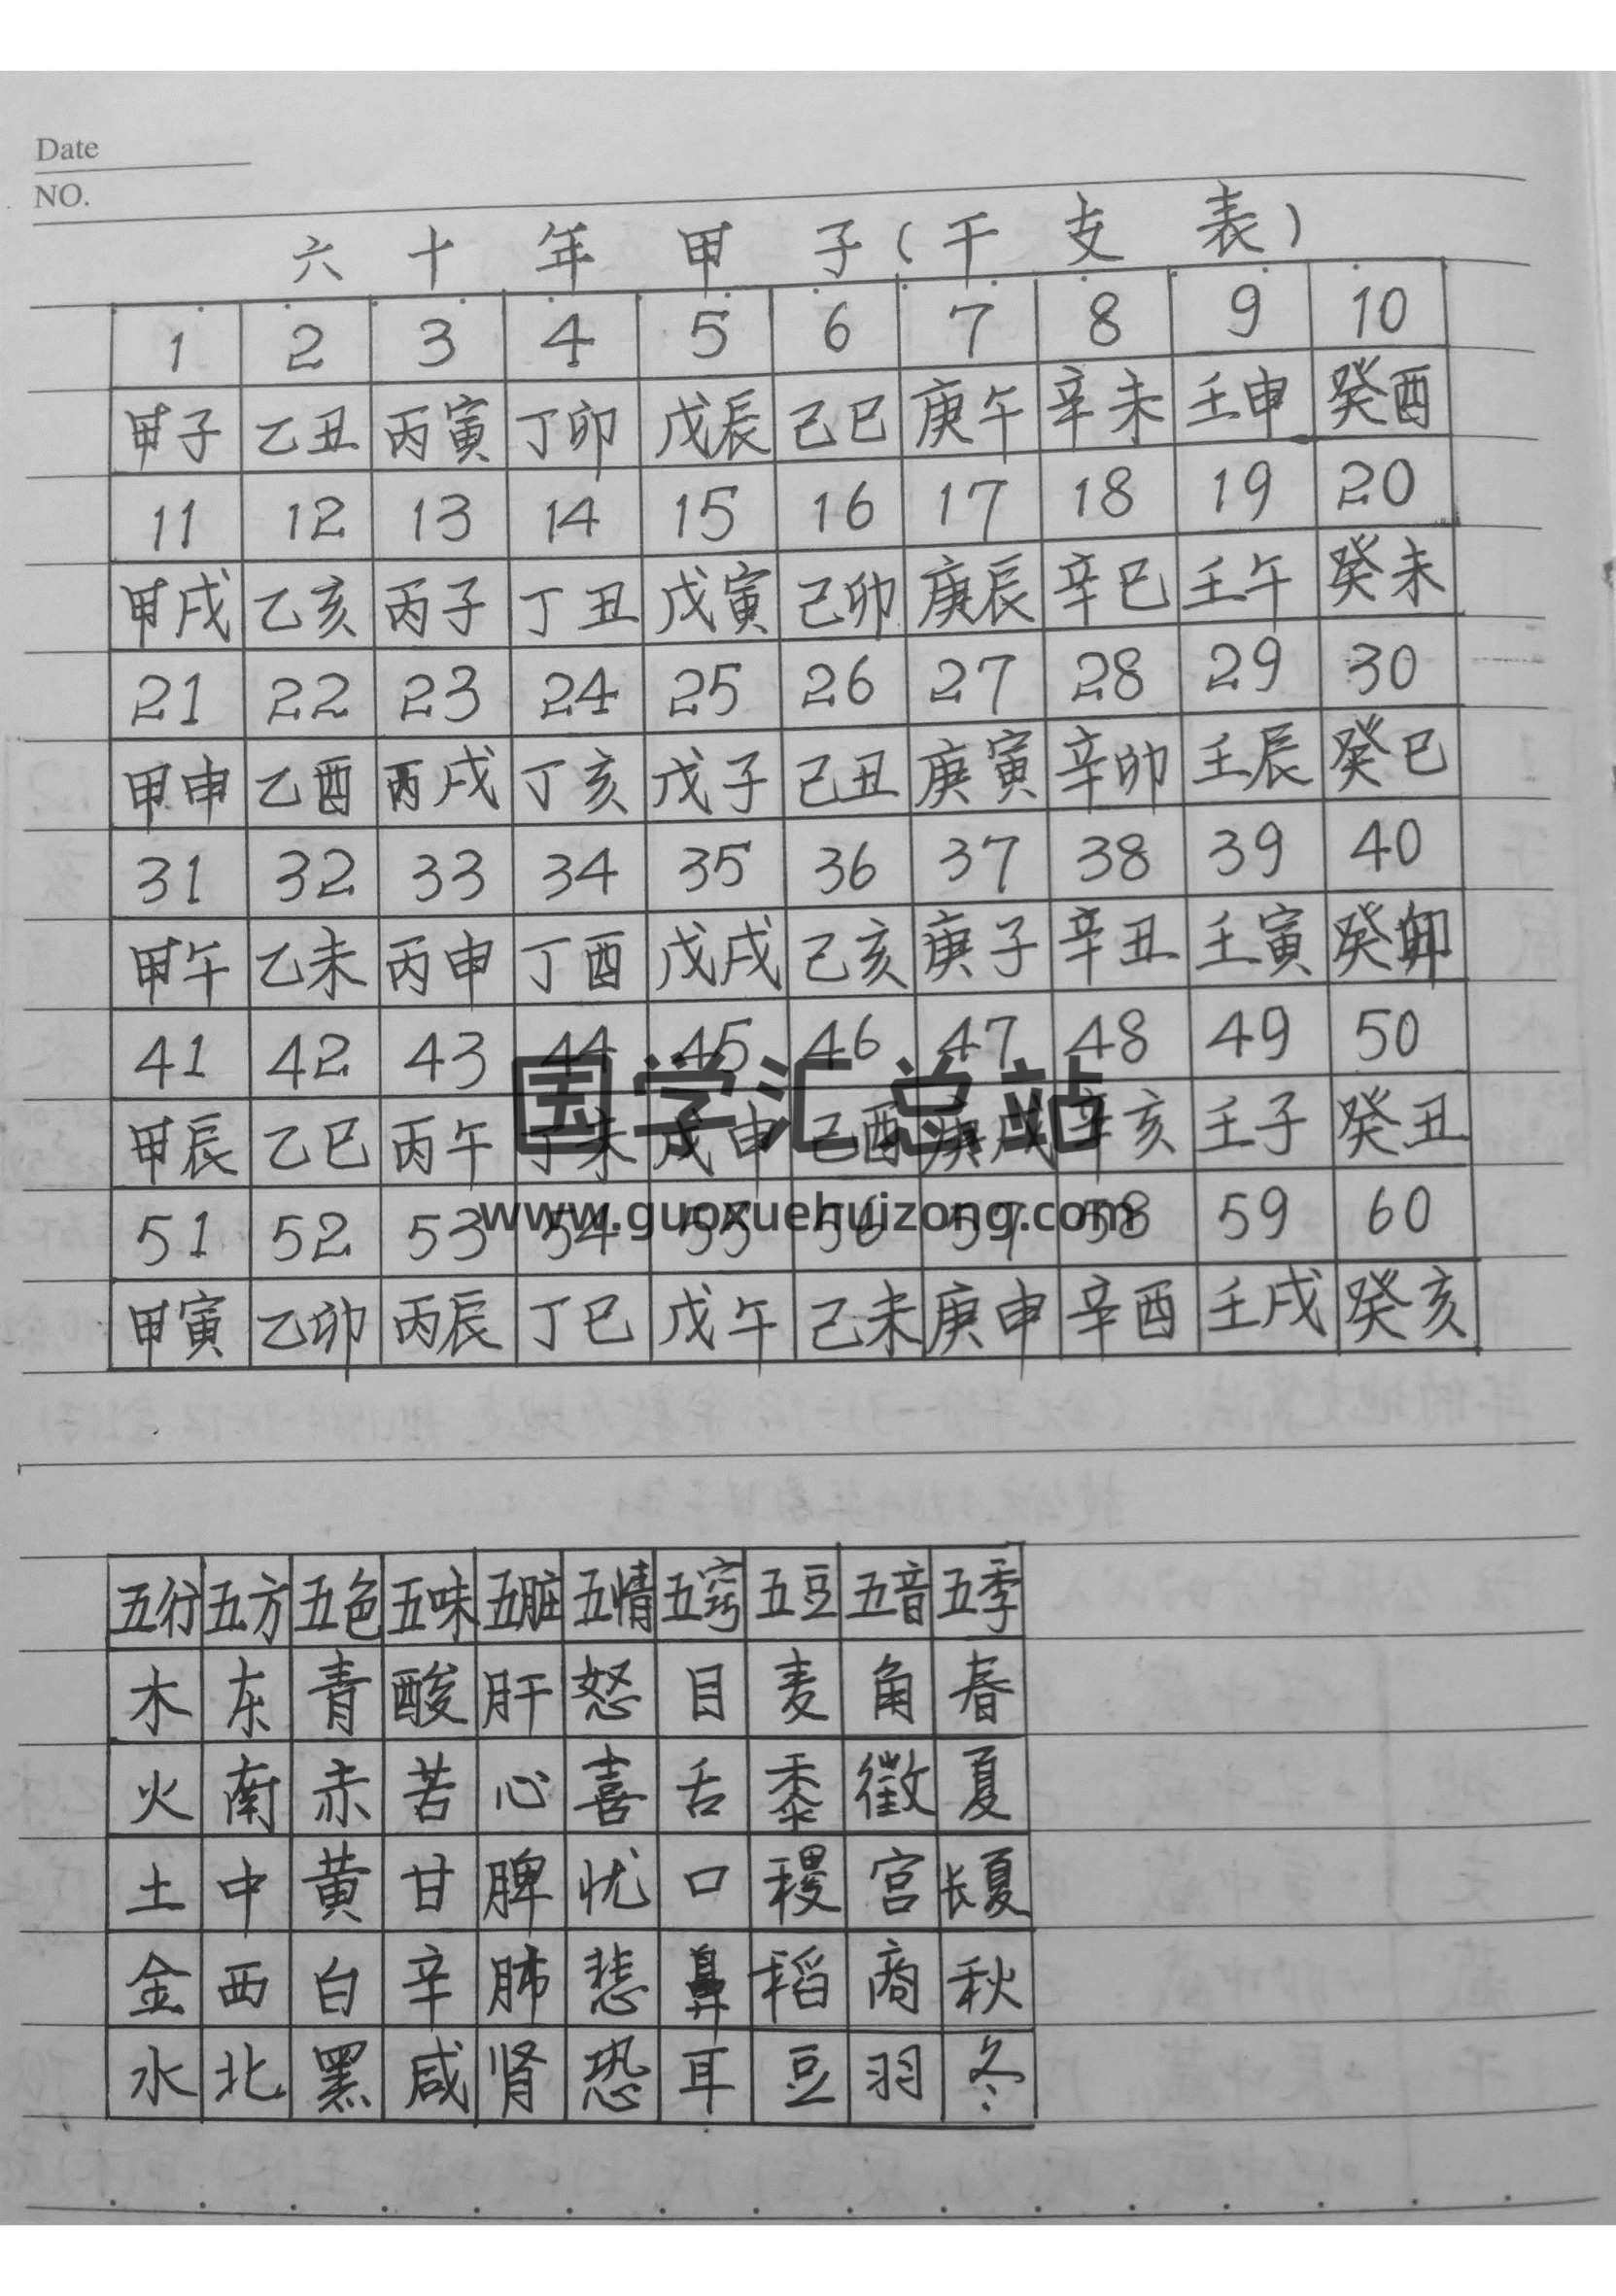 Date
NO.
六十年甲子(干支表)
1 2 3 4 5 6 7 8 9 10
甲子 乙丑 丙寅 丁卯 戊辰 己巳 庚午 辛未 壬申 癸酉
11 12 13 14 15 16 17 18 19 20
甲戌 乙亥 丙子 丁丑 戊寅 己卯 庚辰 辛巳 壬午 癸未
21 22 23 24 25 26 27 28 29 30
甲申 乙酉 丙戌 丁亥 戊子 己丑 庚寅 辛卯 壬辰 癸巳
31 32 33 34 35 36 37 38 39 40
甲午 乙未 丙申 丁酉 戊戌 己亥 庚子 辛丑 壬寅 癸卯
41 42 43 44 45 46 47 48 49 50
国学汇总站
甲辰 乙巳 丙午 丁未 戊申 己酉 庚戌 辛亥 壬子 癸丑
www.guoxuehuizong.com
51 52 53 54 55 56 57 58 59 60
甲寅 乙卯 丙辰 丁巳 戊午 己未 庚申 辛酉 壬戌 癸亥
五行 五方 五色 五味 五脏 五情 五窍 五豆 五音 五季
木 东 青 酸 肝 怒 目 麦 角 春
火 南 赤 苦 心 喜 舌 黍 徵 夏
土 中 黄 甘 脾 忧 口 稷 宫 长夏
金 西 白 辛 肺 悲 鼻 稻 商 秋
水 北 黑 咸 肾 恐 耳 豆 羽 冬